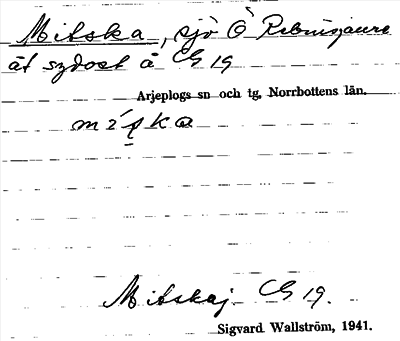 Mitska, sjö Ö Rebnisjaure
åt sydost å C5 19
Arjeplogs sn och tg, Norrbottens län.
Mitskaj C5 19.
Sigvard Wallström, 1941.